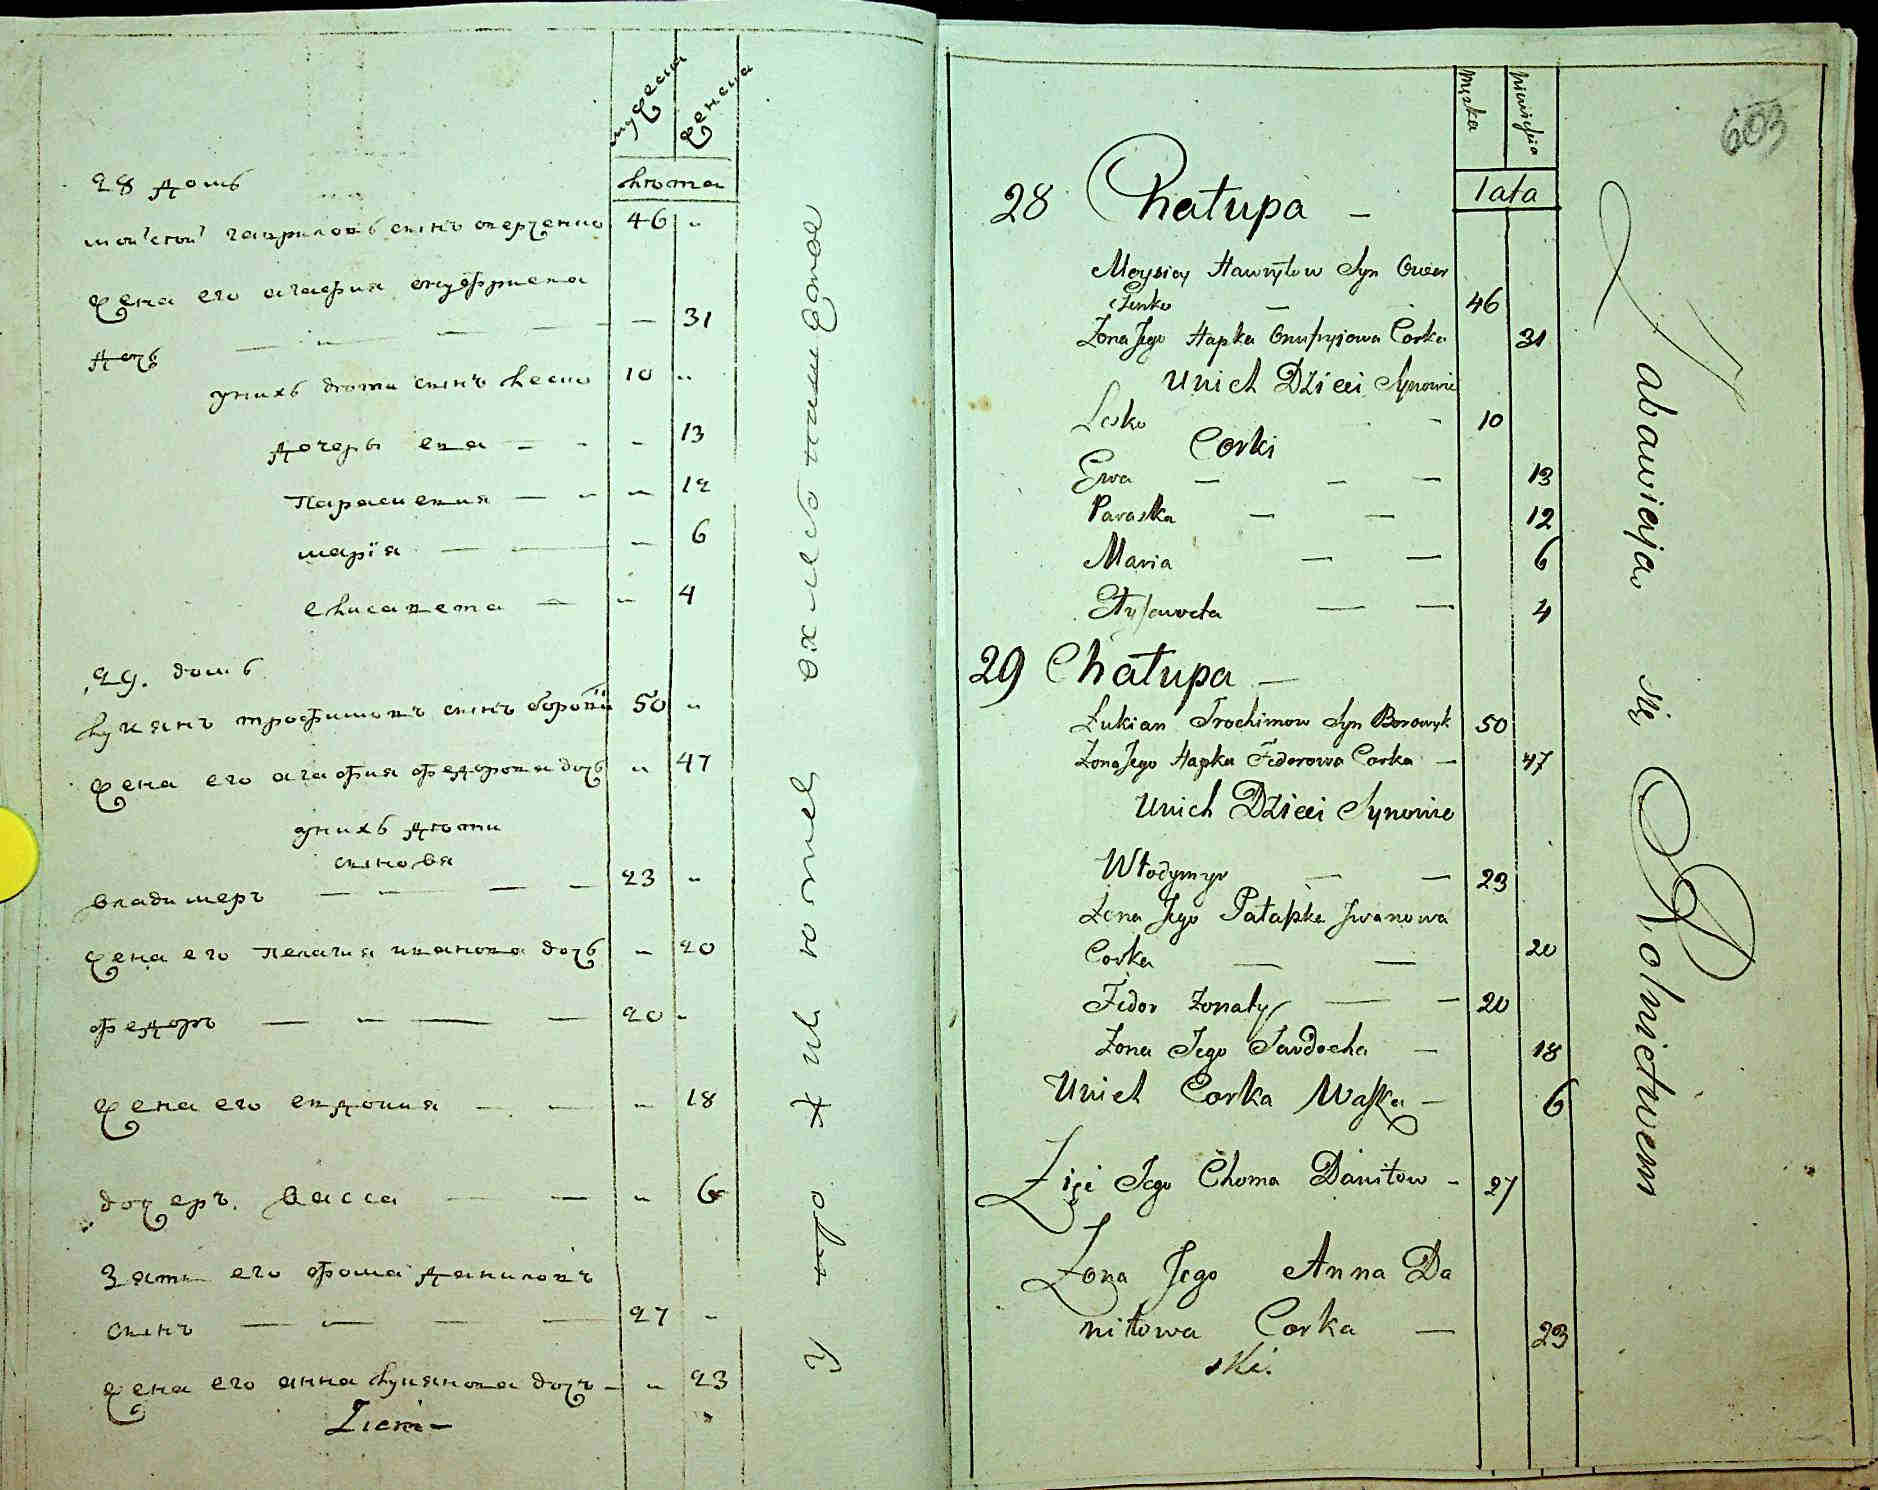 мужеска
женска
лѣта
28 домъ
моисей гавриловъ сынъ оверченко 46 "
жена его агафия онуфриева
дочь — " — — — 31
у нихъ дѣти сынъ леско 10 "
дочеры ева — - - - 13
Параскевия — " " 12
марїя — — - 6
елисавета — " 4
29. домъ
лукянъ трофимовъ сынъ боровик 50 "
жена его агафия федорова дочь " 47
у нихъ дѣти
сыновя
владимеръ — — — — 23 "
жена его пелагия иванова дочь - 20
федоръ — - — — 20 -
жена его евдокия — — - 18
дочеръ. васса — — " 6
Зять его фома даниловъ
сынъ — - — — 27 -
жена его анна лукянова дочъ - " 23
Ziem-
603
męska
niewieścia
lata
28 Chałupa —
Moysiey Hawryłow Syn Ower
czenko — 46
Żona Jego Hapka Onufryiowa Corka 31
Unich Dzieci Synowie
Lesko — — 10
Corki
Ewa — — — 13
Paraska — — 12
Maria — — 6
Elyzaweta — — 4
29 Chałupa —
Łukian Trochimow Syn Borowyk 50
Żona Jego Hapka Fedorowa Corka — 47
Unich Dzieci Synowie
Włodymyr — — 23
Żona Jego Pałaszka Jwanowa
Corka — — 20
Fedor żonaty — — 20
Żona Jego Jawdocha — 18
Unich Corka Waska — 6
Zięć Jego Choma Daniłow - 27
Żona Jego Anna Da
niłowa Corka — 23
ski.
Zabawiaja się Rolnictwem